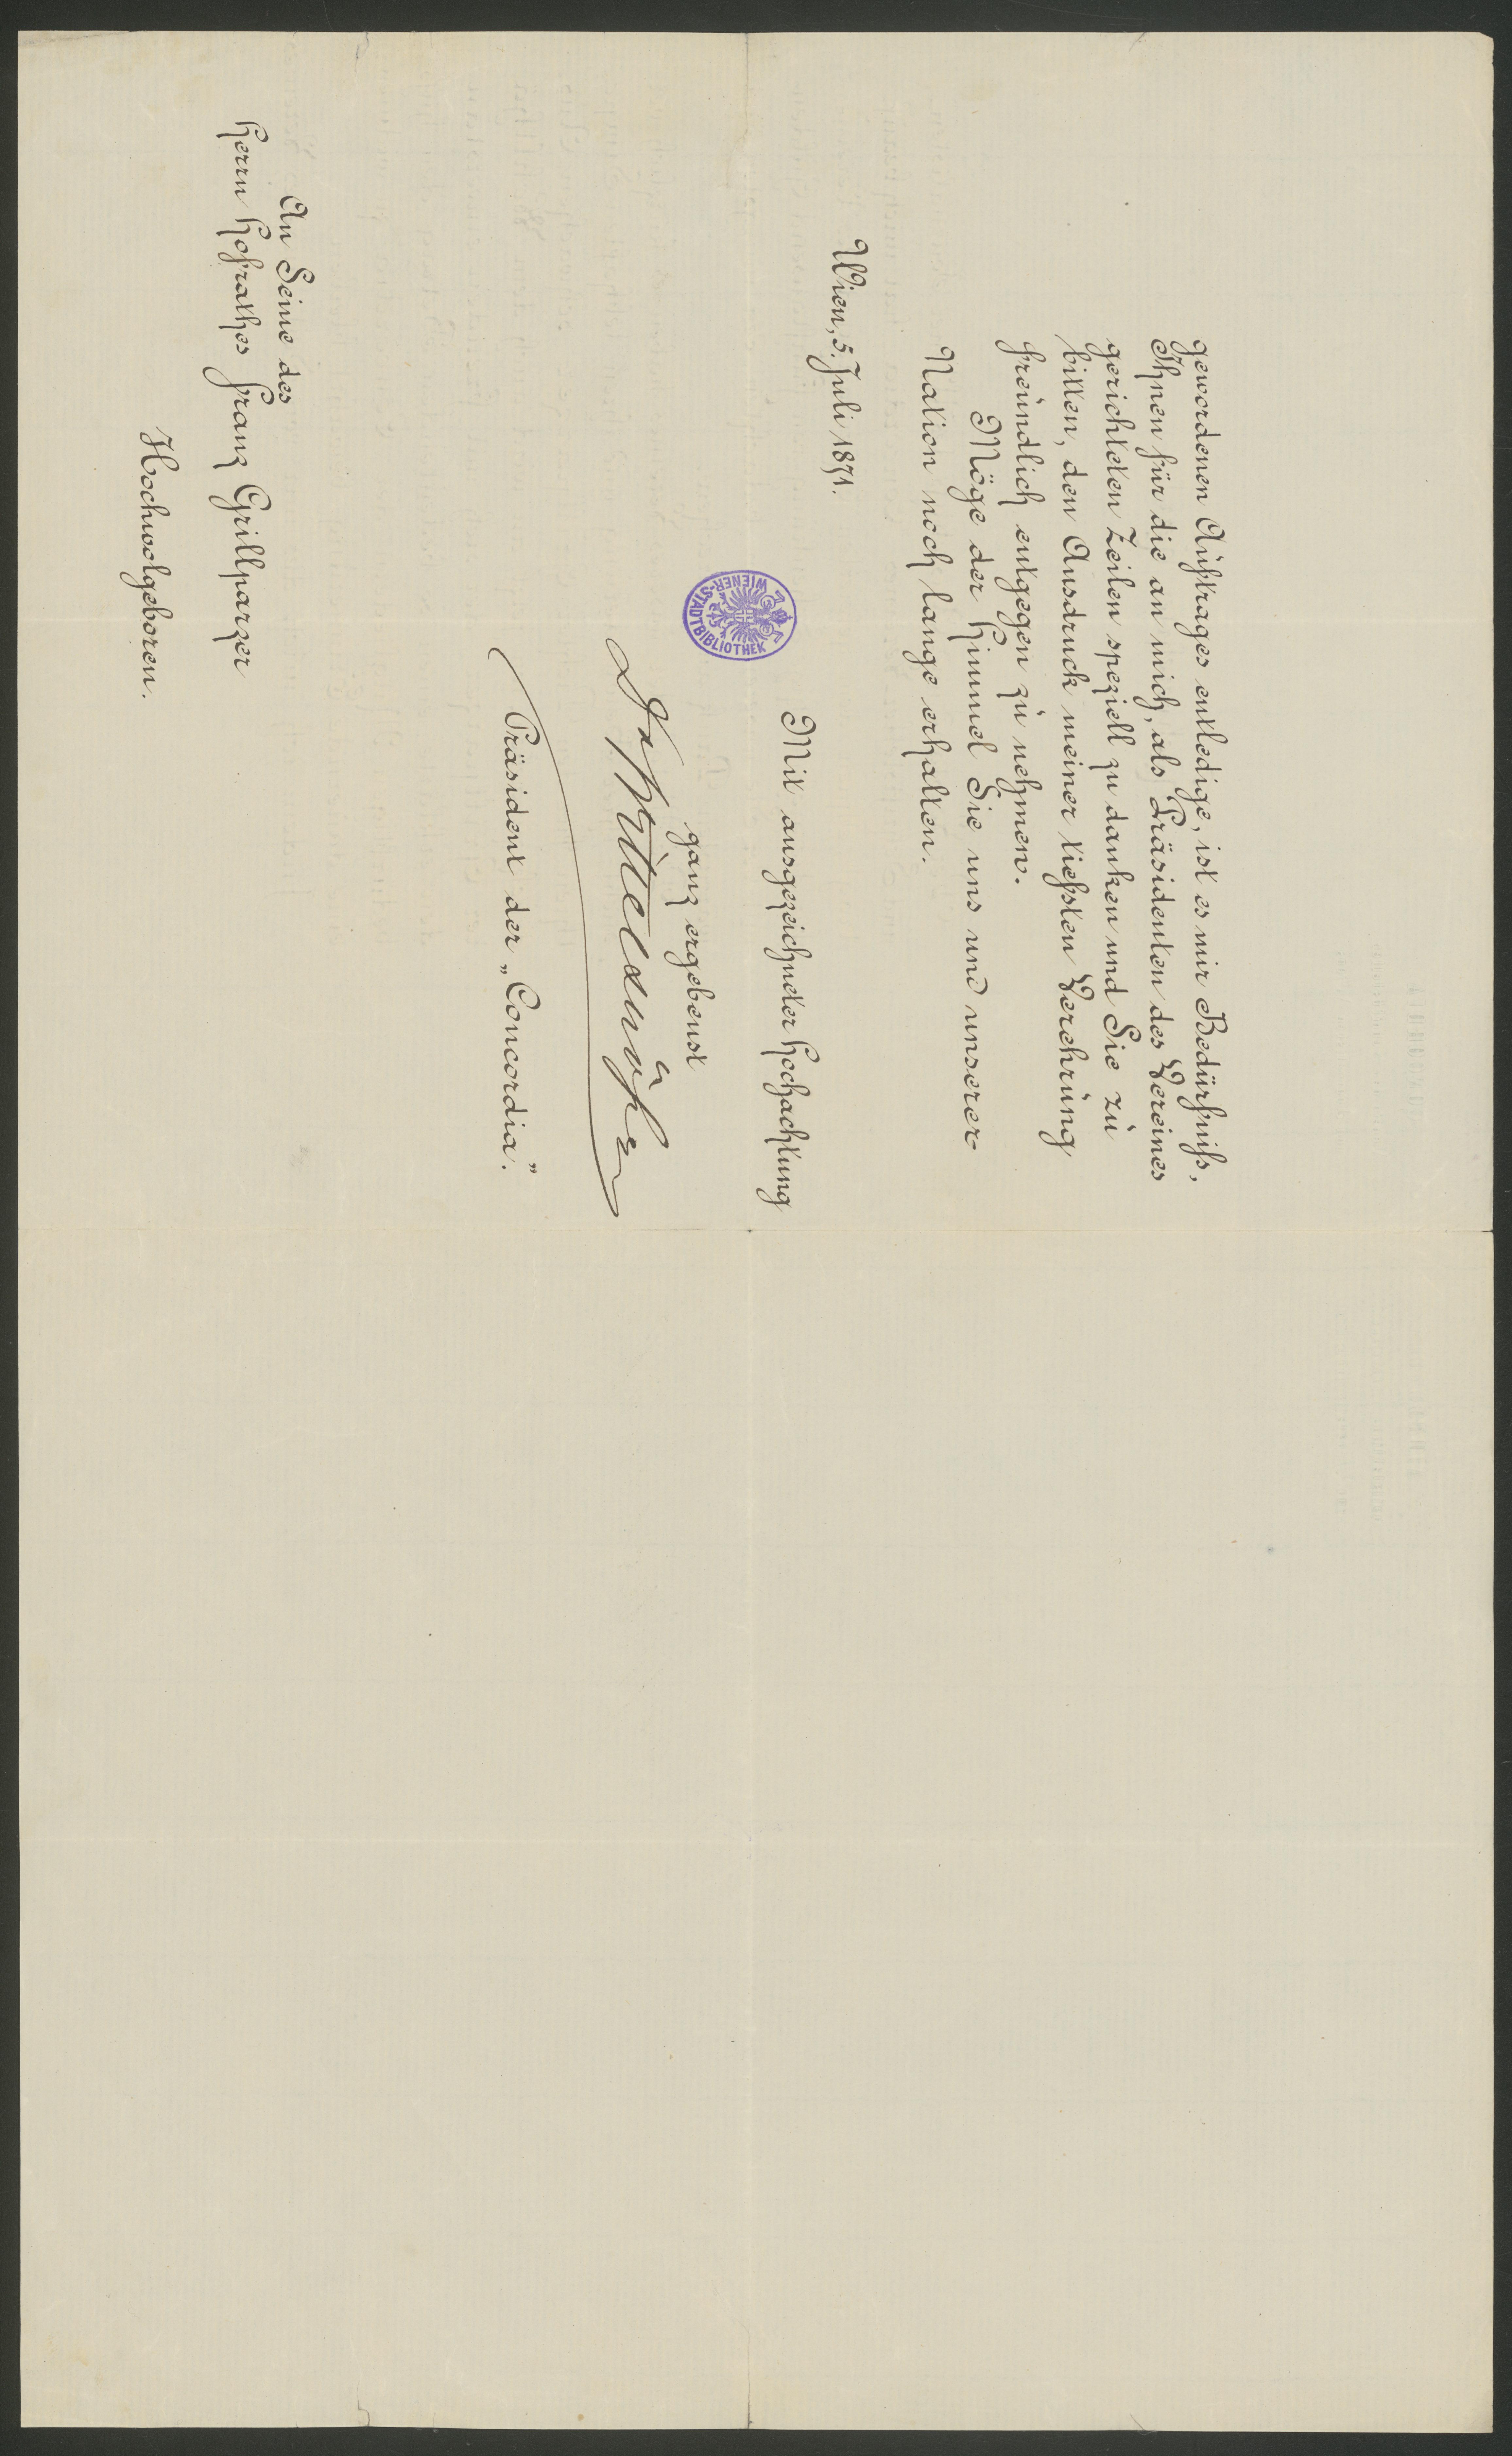 gewordenen Auftrages entledige, ist es mir Bedürfniss,
Ihnen für die an mich, als Präsidenten des Vereines
gerichteten Zeilen speziell zu danken und Sie zu
bitten, den Ausdruck meiner tiefsten Verehrung
freundlich entgegen zu nehmen.
Möge der Himmel Sie uns und unserer
Nation noch lange erhalten.
Wien, 5. Juli 1871.
Mit ausgezeichneter Hochachtung
ganz ergebenst
Präsident der „Concordia."
WIENER-STADTBIBLIOTHEK
An Seine des
Herrn Hofrathes Franz Grillparzer
Hochwolgeboren.